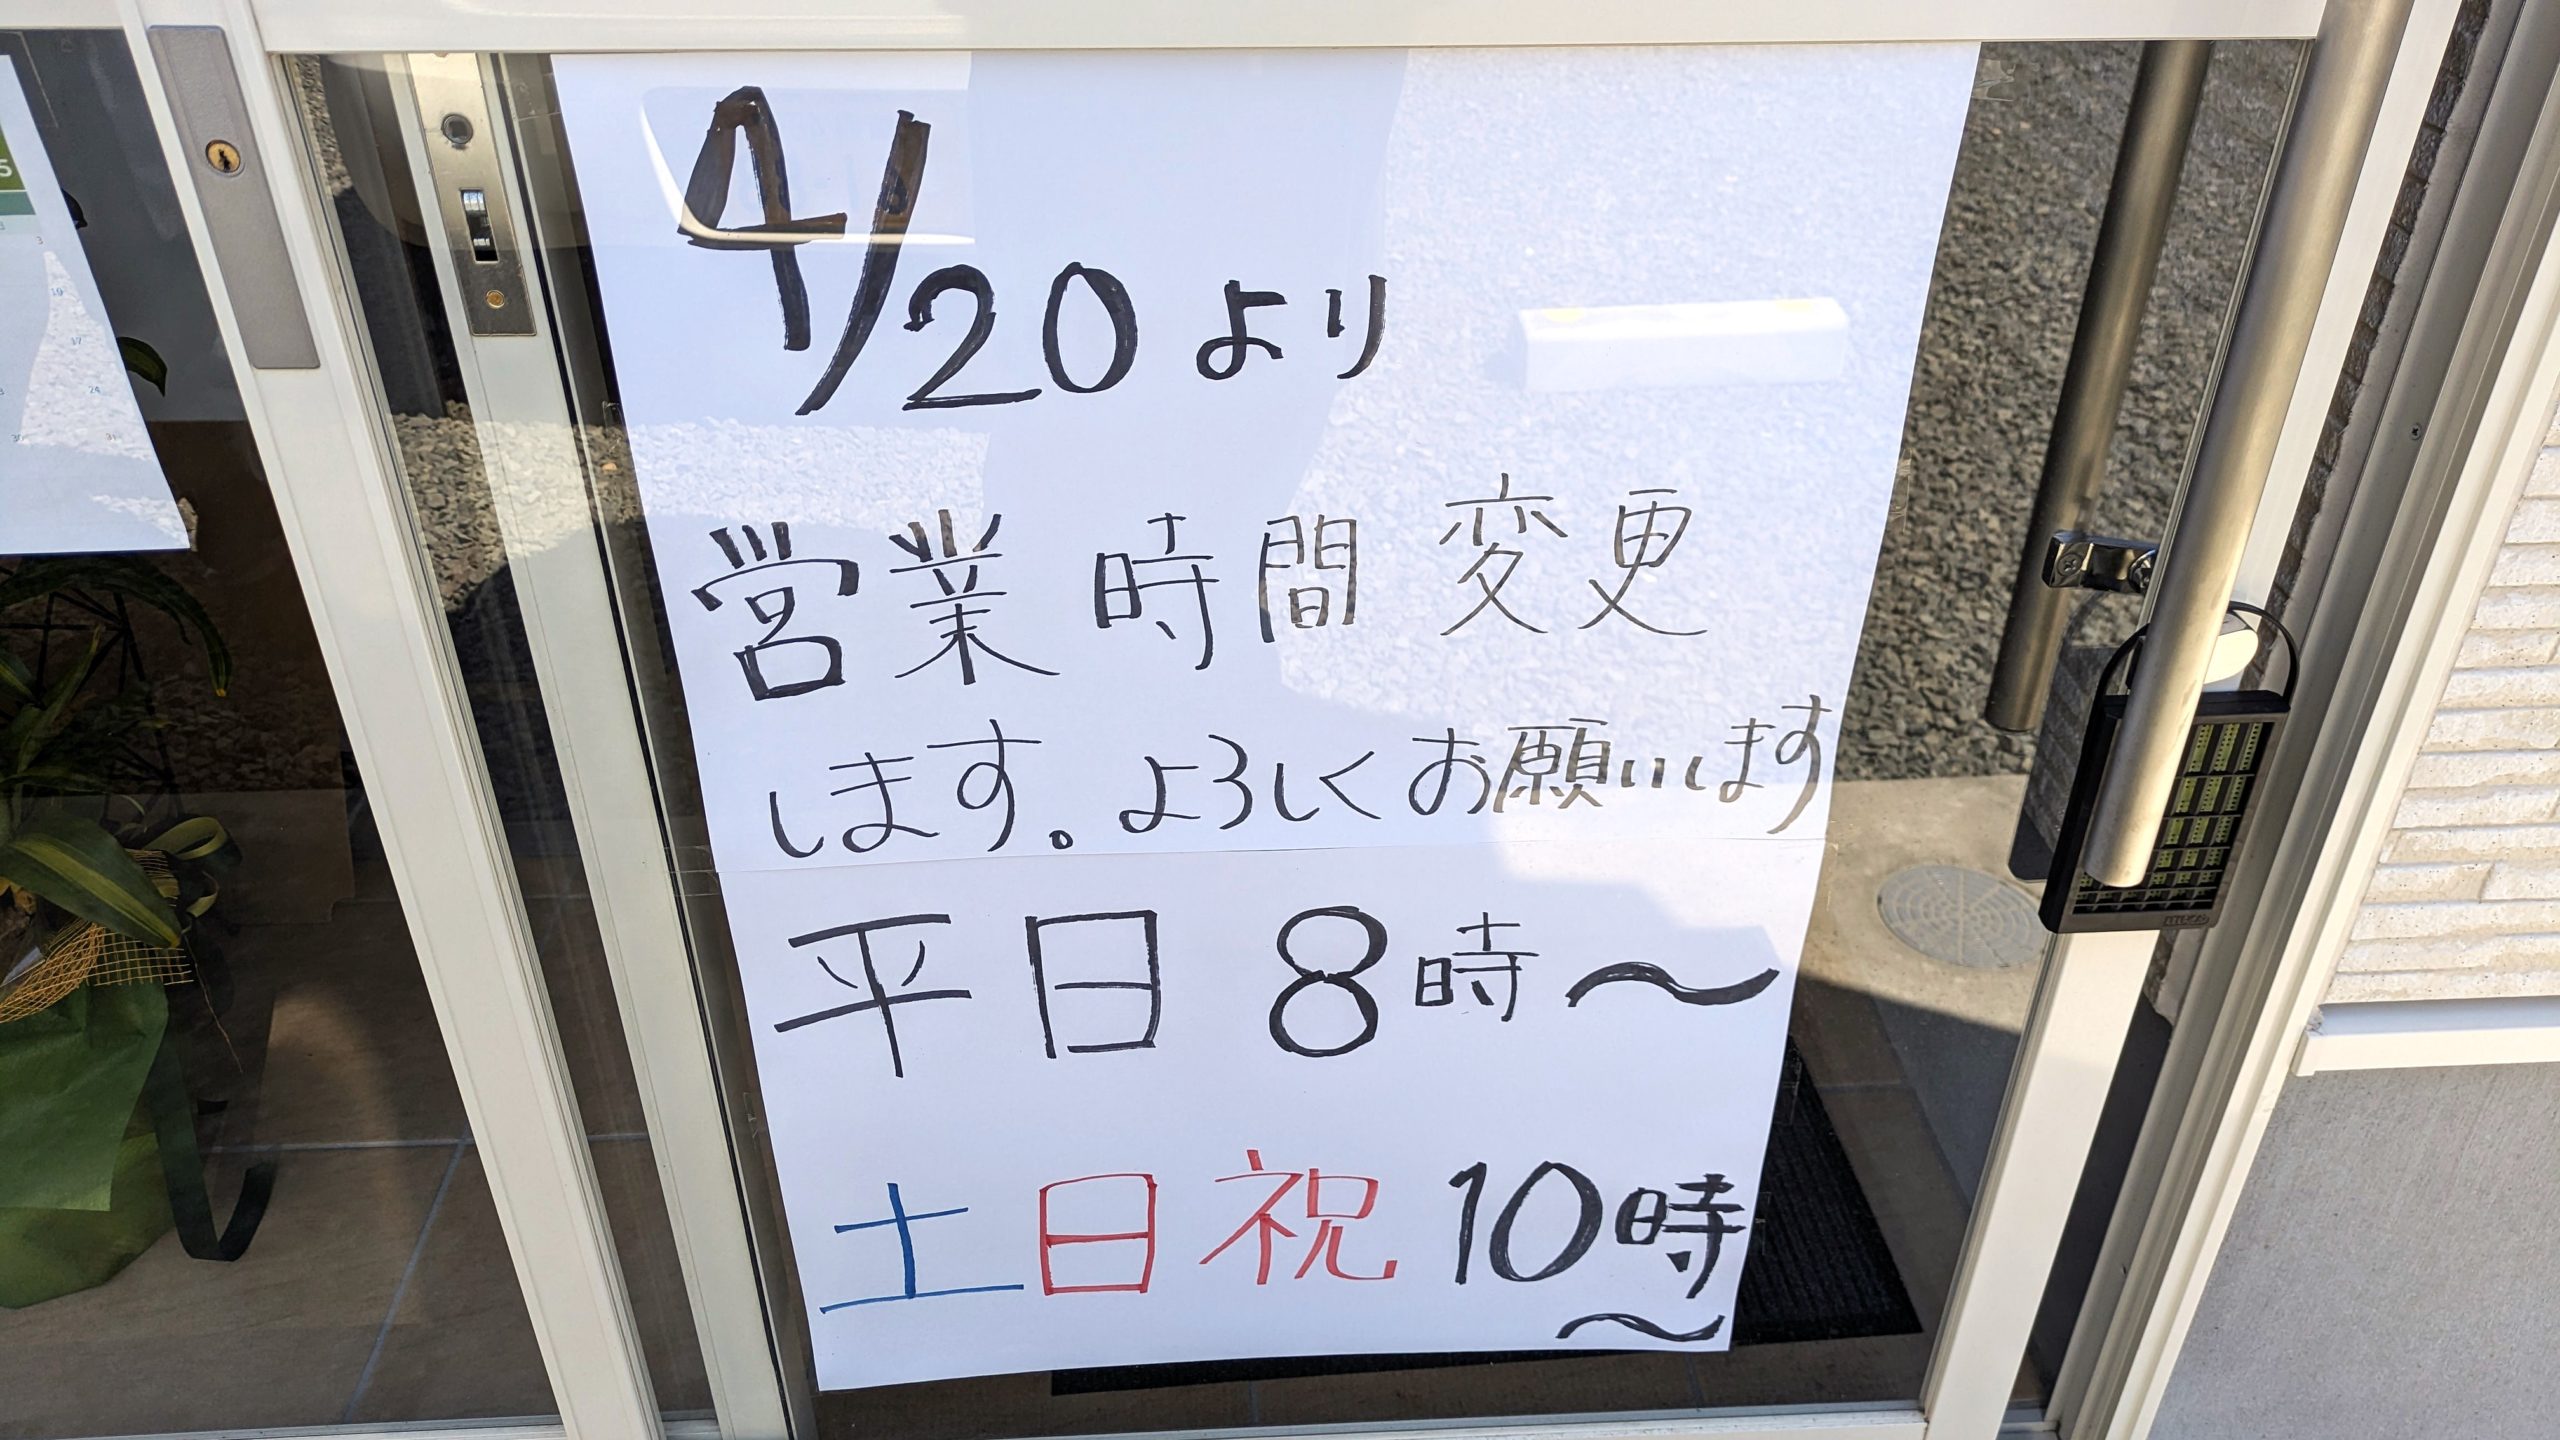 4/20より
営業時間変更
します。よろしくお願いします
平日 8時～
土日祝 10時
～
5
3
19
17
24
30 31